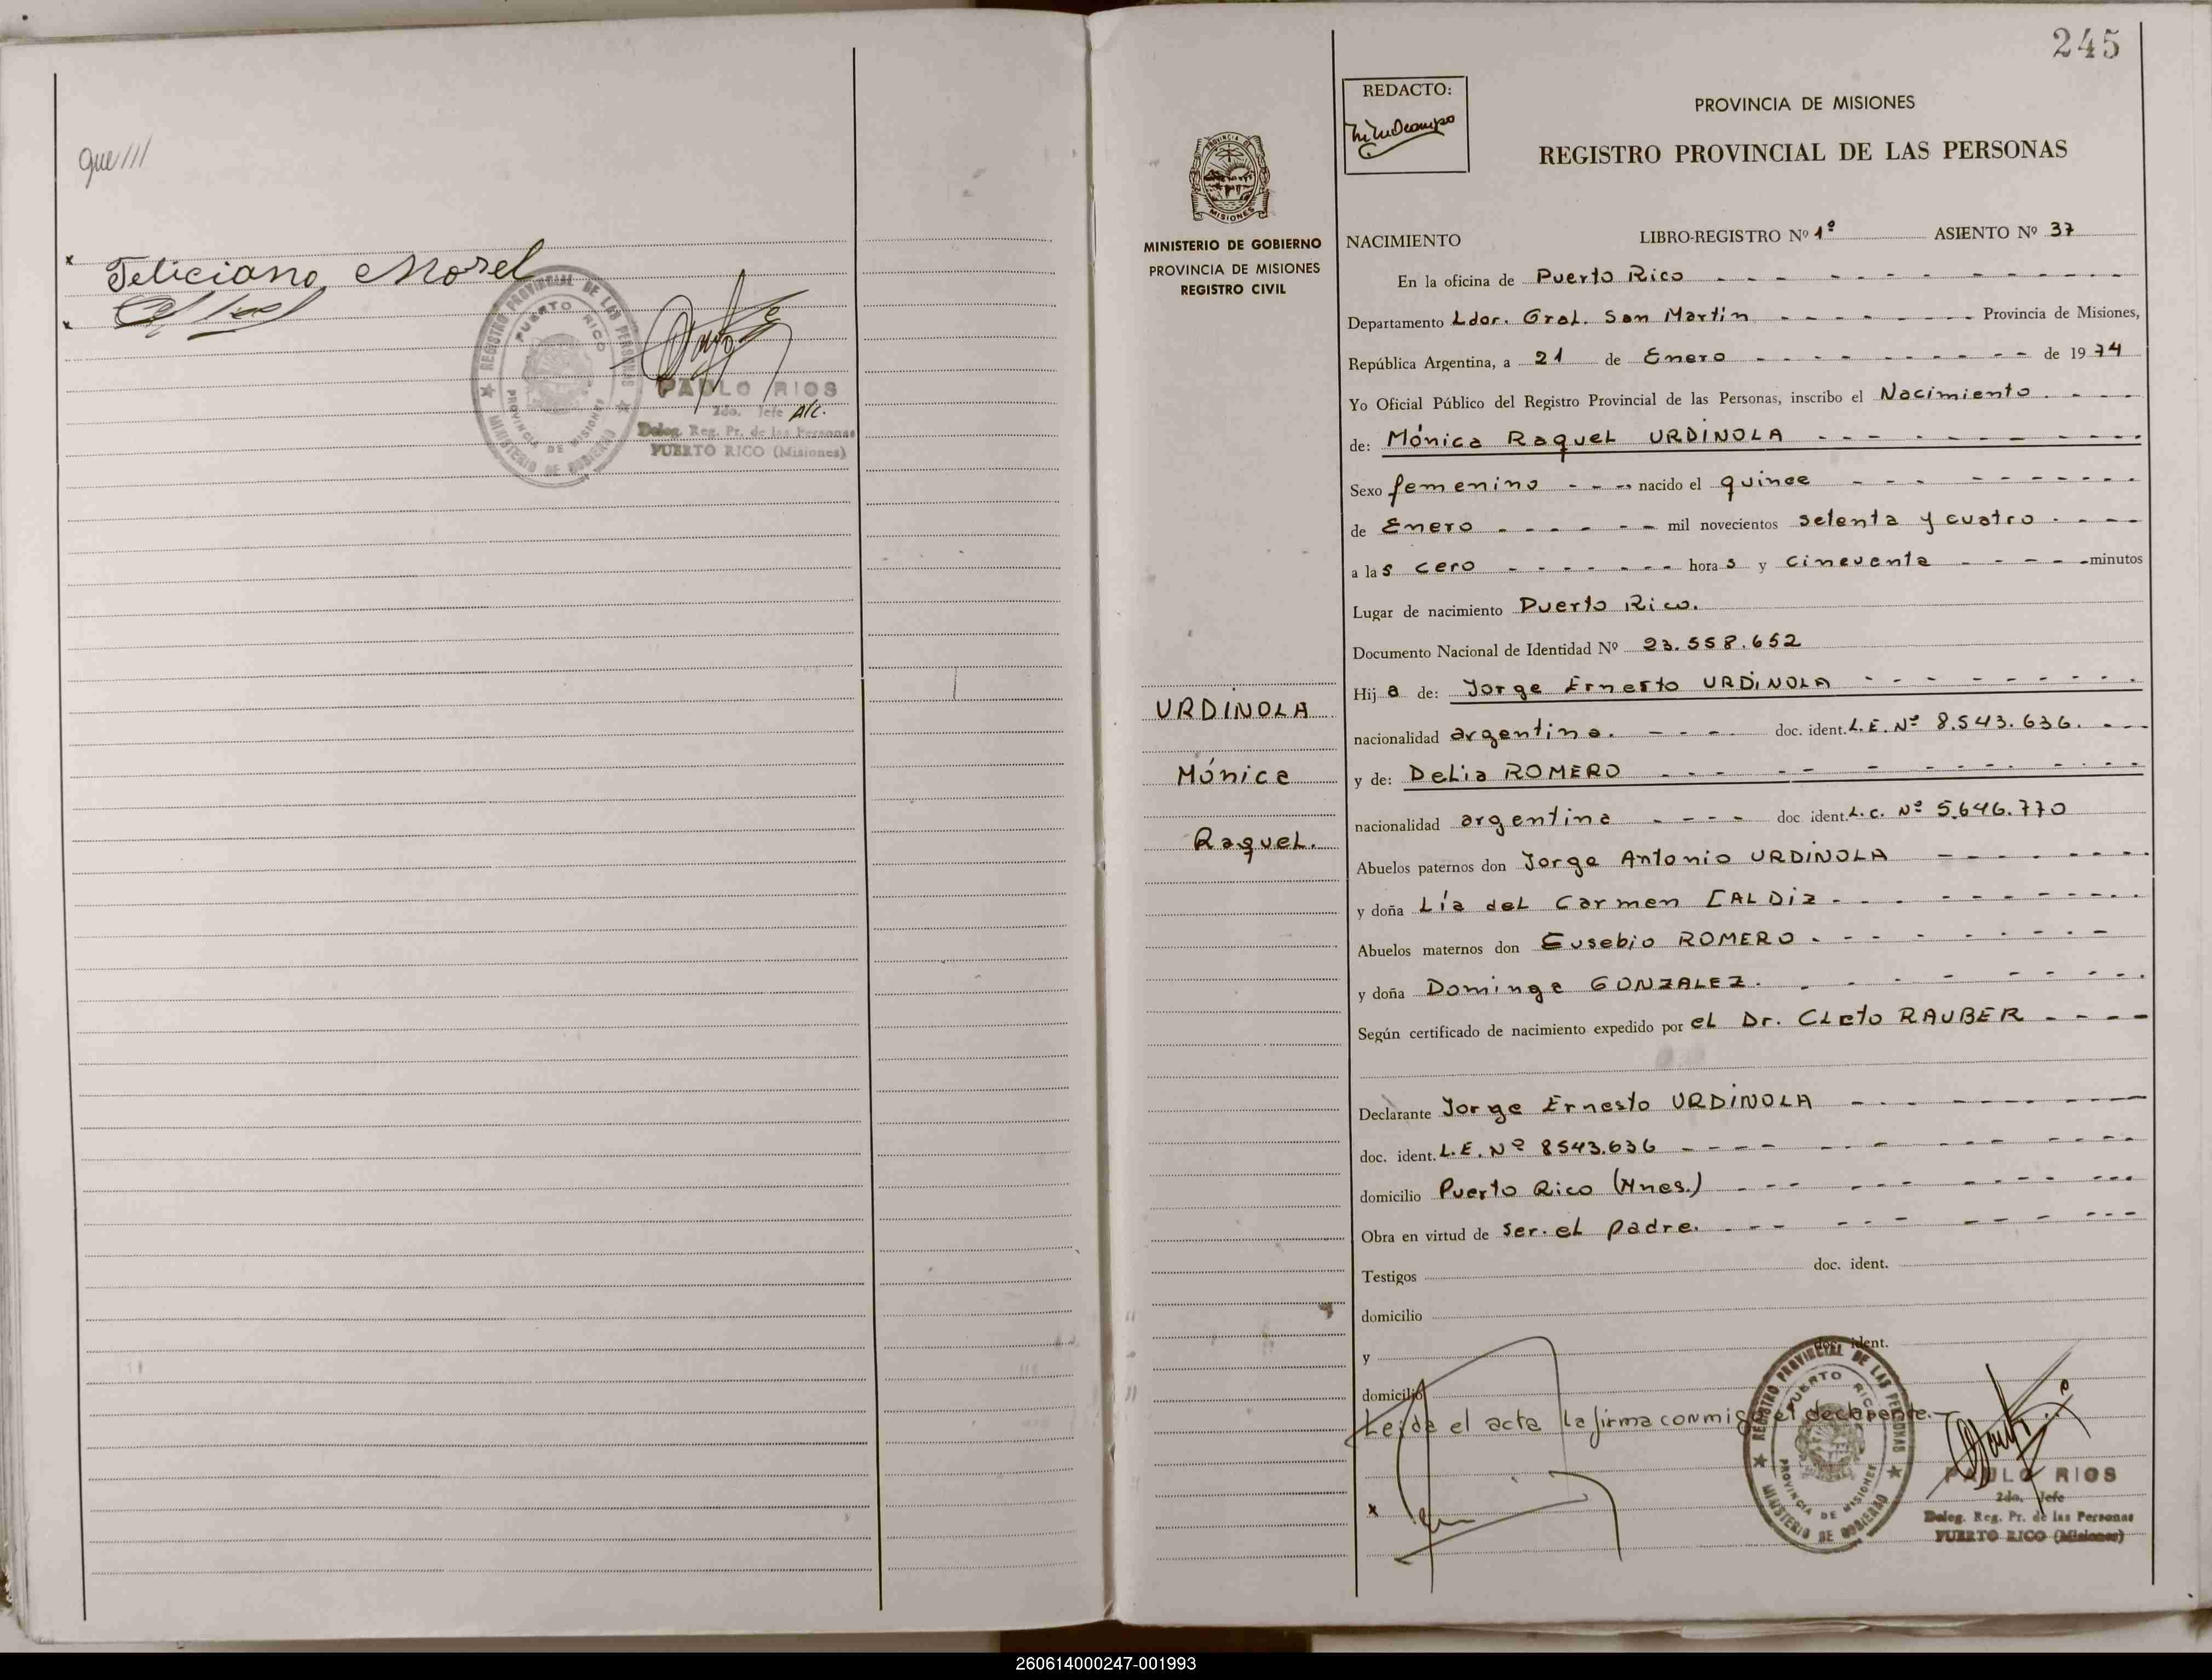 que///
Feliciano Morel
REGISTRO PROVINCIAL DE LAS PERSONAS
PUERTO RICO
PROVINCIA DE MISIONES
MINISTERIO DE GOBIERNO
PAULO RIOS
2do. Jefe A/c.
Deleg. Reg. Pr. de las Personas
PUERTO RICO (Misiones)
245
REDACTO:
PROVINCIA DE MISIONES
REGISTRO PROVINCIAL DE LAS PERSONAS
PROVINCIA DE
MISIONES
MINISTERIO DE GOBIERNO
PROVINCIA DE MISIONES
REGISTRO CIVIL
URDINOLA
Mónica
Raquel.
NACIMIENTO LIBRO-REGISTRO Nº 1º ASIENTO Nº 37
En la oficina de Puerto Rico
Departamento Ldor. Gral. San Martín Provincia de Misiones,
República Argentina, a 21 de Enero de 1974
Yo Oficial Público del Registro Provincial de las Personas, inscribo el Nacimiento
de: Mónica Raquel URDINOLA
Sexo femenino nacido el quince
de Enero mil novecientos setenta y cuatro
a las cero horas y cincuenta minutos
Lugar de nacimiento Puerto Rico.
Documento Nacional de Identidad Nº 23.558.652
Hija de: Jorge Ernesto URDINOLA
nacionalidad argentina. doc. ident. L.E. Nº 8.543.636.
y de: Delia ROMERO
nacionalidad argentina doc ident. L.C. Nº 5.646.770
Abuelos paternos don Jorge Antonio URDINOLA
y doña Lía del Carmen CALDIZ
Abuelos maternos don Eusebio ROMERO
y doña Dominga GONZALEZ.
Según certificado de nacimiento expedido por el Dr. Cleto RAUBER
Declarante Jorge Ernesto URDINOLA
doc. ident. L.E. Nº 8543.636
domicilio Puerto Rico (Mnes.)
Obra en virtud de ser el padre.
Testigos doc. ident.
domicilio
y doc. ident.
domicilio
Leida el acta la firma conmigo el declarante.
REGISTRO PROVINCIAL DE LAS PERSONAS
PUERTO RICO
PROVINCIA DE MISIONES
MINISTERIO DE GOBIERNO
PAULO RIOS
2do. Jefe
Deleg. Reg. Pr. de las Personas
PUERTO RICO (Misiones)
260614000247-001993